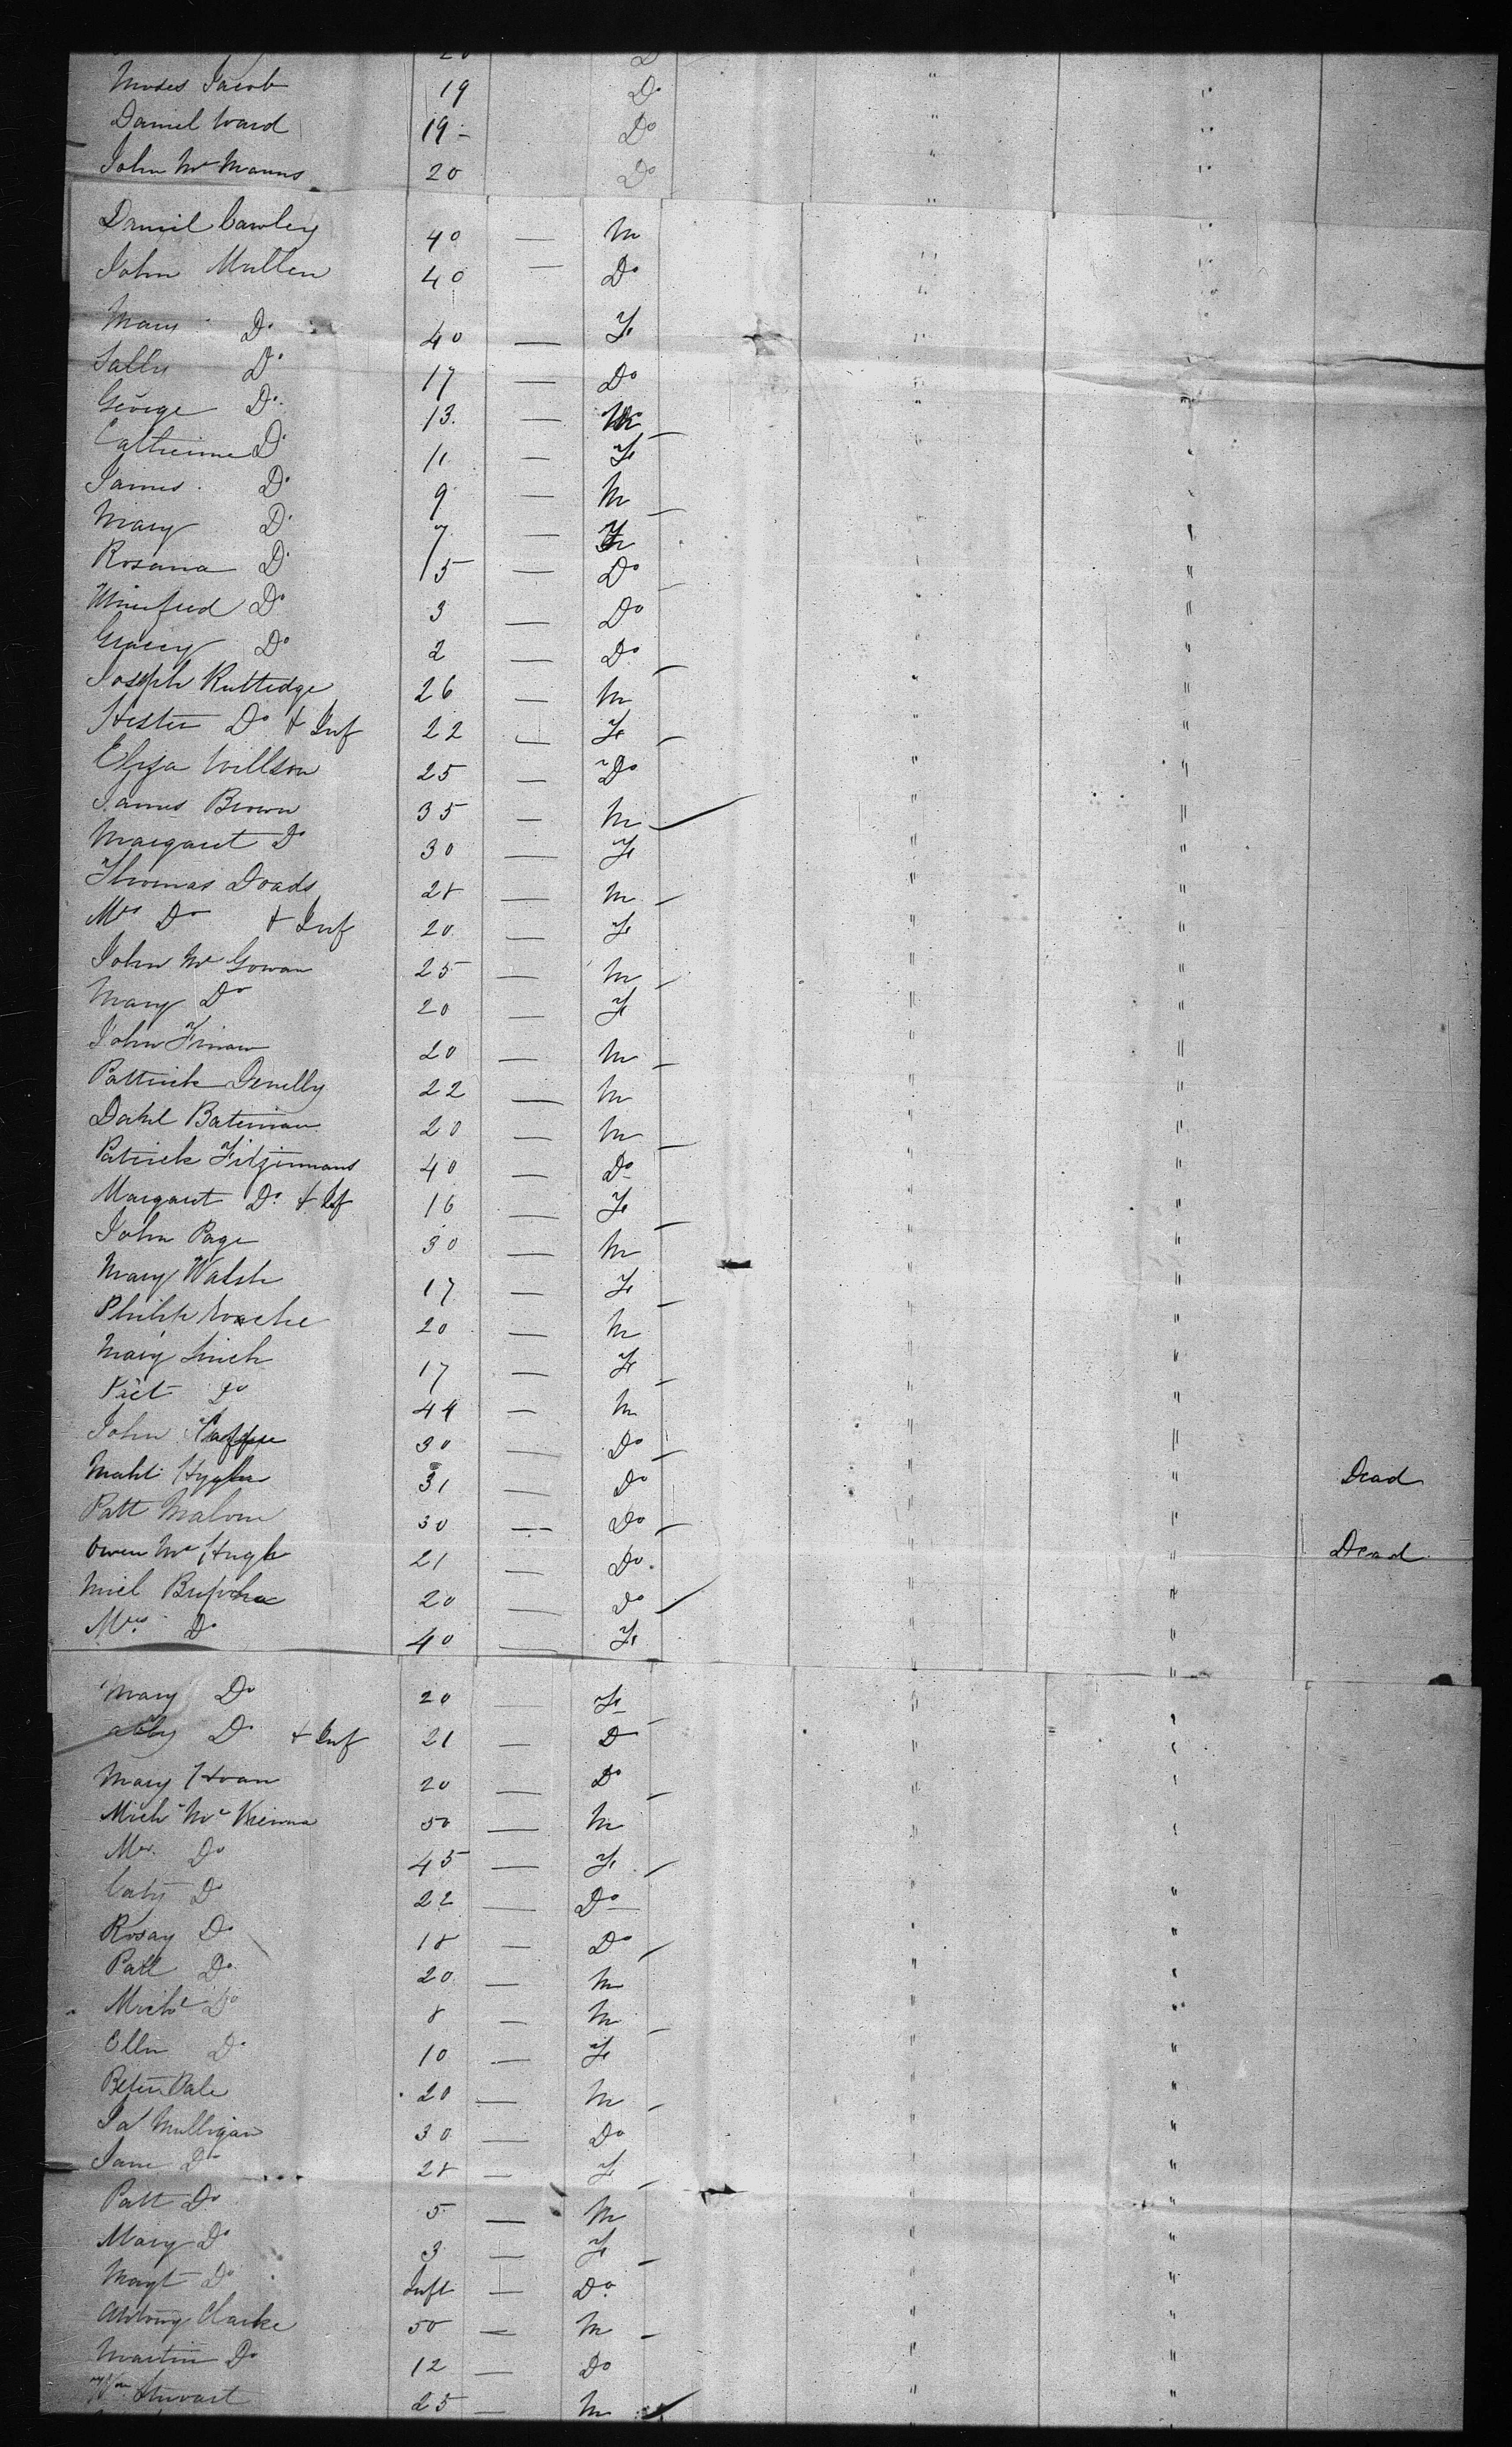 Moses Jacob 19 Do "
Daniel Ward 19 - Do "
John Mc Manus 20 Do "
Daniel Cawley 40 — M "
John Mullen 40 — Do "
Mary Do 40 — Fe "
Sally Do 17 — Do "
George Do 13 — M "
Catherine Do 11 — Fe "
James Do 9 — M "
Mary Do 7 — Fe "
Rosana Do 15 — Do "
Winefred Do 3 — Do "
Gracey Do 2 — Do "
Joseph Ruttedge 26 — M "
Hester Do & Inf 22 — Fe "
Eliza Willson 25 — Do "
James Brown 35 — M "
Margaret Do 30 — Fe "
Thomas Doads 28 — M "
Mrs Do & Inf 20 — Fe "
John Mc Gowan 25 — M "
Mary Do 20 — Fe "
John Finan 20 — M "
Pattrick 22 — M "
Bateman 20 — M "
Patrick Fitzimmans 40 — Do "
Margaret Do & Inf 16 — Fe "
John Page 30 — M "
Mary Walsh 17 — Fe "
Philip Roache 20 — M "
Mary Linch 17 — Fe "
Do 44 — M "
John 30 — Do "
31 — Do " Dead
Patt Malone 30 — Do "
Owen Mc Hugh 21 — Do " Dead
20 — Do "
Mrs Do 40 — Fe "
Mary Do 20 — Fe "
Abby Do & Inf 21 — Do "
Mary Hoan 20 — Do "
Mich Mc Kenna 50 — M "
Mrs Do 45 — Fe "
Caty Do 22 — Do "
Rosay Do 18 — Do "
Patt Do 20 — M "
Michl Do 8 — M "
Ellen Do 10 — Fe "
Dale 20 — M "
Ja Mulligan 30 — Do "
Jane Do 28 — Fe "
Patt Do 5 — M "
Mary Do 3 — Fe "
Magt Do Inft — Do "
Antony Clarke 50 — M "
Martin Do 12 — Do "
Wm Stuvart 25 — M "